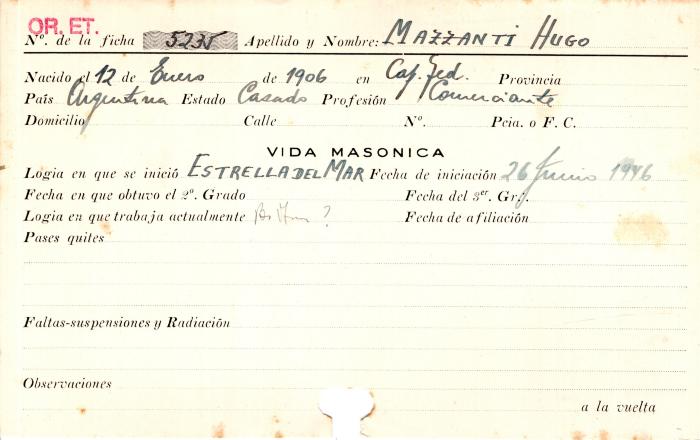 OR. ET.
Nº. de la ficha 5235 Apellido y Nombre: MAZZANTI HUGO
Nacido el 12 de Enero de 1906 en Cap. Fed. Provincia
País Argentina Estado Casado Profesión Comerciante
Domicilio Calle Nº. Pcia. o F. C.
VIDA MASONICA
Logia en que se inició ESTRELLA DEL MAR Fecha de iniciación 26 Junio 1946
Fecha en que obtuvo el 2º. Grado Fecha del 3er. Gr.
Logia en que trabaja actualmente ? Fecha de afiliación
Pases quites
Faltas-suspensiones y Radiación
Observaciones
a la vuelta